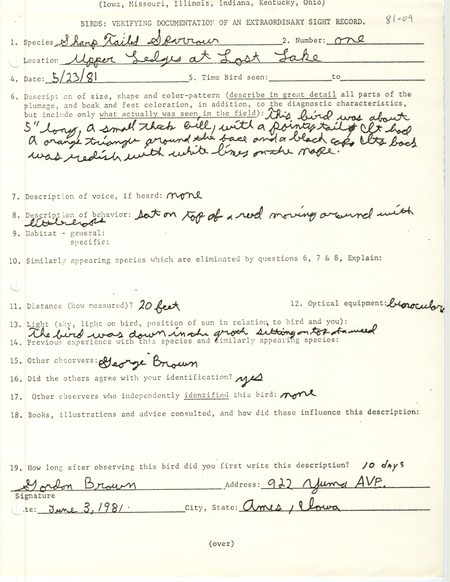 (Iowa, Missouri, Illinois, Indiana, Kentucky, Ohio)
81-09
BIRDS: VERIFYING DOCUMENTATION OF AN EXTRAORDINARY SIGHT RECORD.
1. Species Sharp Tails Sparrow 2. Number: one
Location Upper Ledges at Lost Lake
4. Date: 5/23/81 5. Time Bird seen: to
6. Description of size, shape and color-pattern (describe in great detail all parts of the
plumage, and beak and feet coloration, in addition, to the diagnostic characteristics,
but include only what actually was seen in the field): This bird was about
5" long, a small thick bill, with a pointy tail. It had
a orange triangle around the face and a black cap. Its back
was redish with white lines on the nape.
7. Description of voice, if heard: none
8. Description of behavior: sat on top of a reed moving around with
little hops
9. Habitat - general:
specific:
10. Similarly appearing species which are eliminated by questions 6, 7 & 8, Explain:
11. Distance (how measured)? 20 feet 12. Optical equipment: binoculars
13. Light (sky, light on bird, position of sun in relation to bird and you):
The bird was down in the sitting on top of a weed
14. Previous experience with this species and similarly appearing species:
15. Other observers: George Brown
16. Did the others agree with your identification? yes
17. Other observers who independently identified this bird: none
18. Books, illustrations and advice consulted, and how did these influence this description:
19. How long after observing this bird did you first write this description? 10 days
Gordon Brown Address: 922 Yuma AVE.
Signature
te: June 3, 1981. City, State: Ames, Iowa
(over)